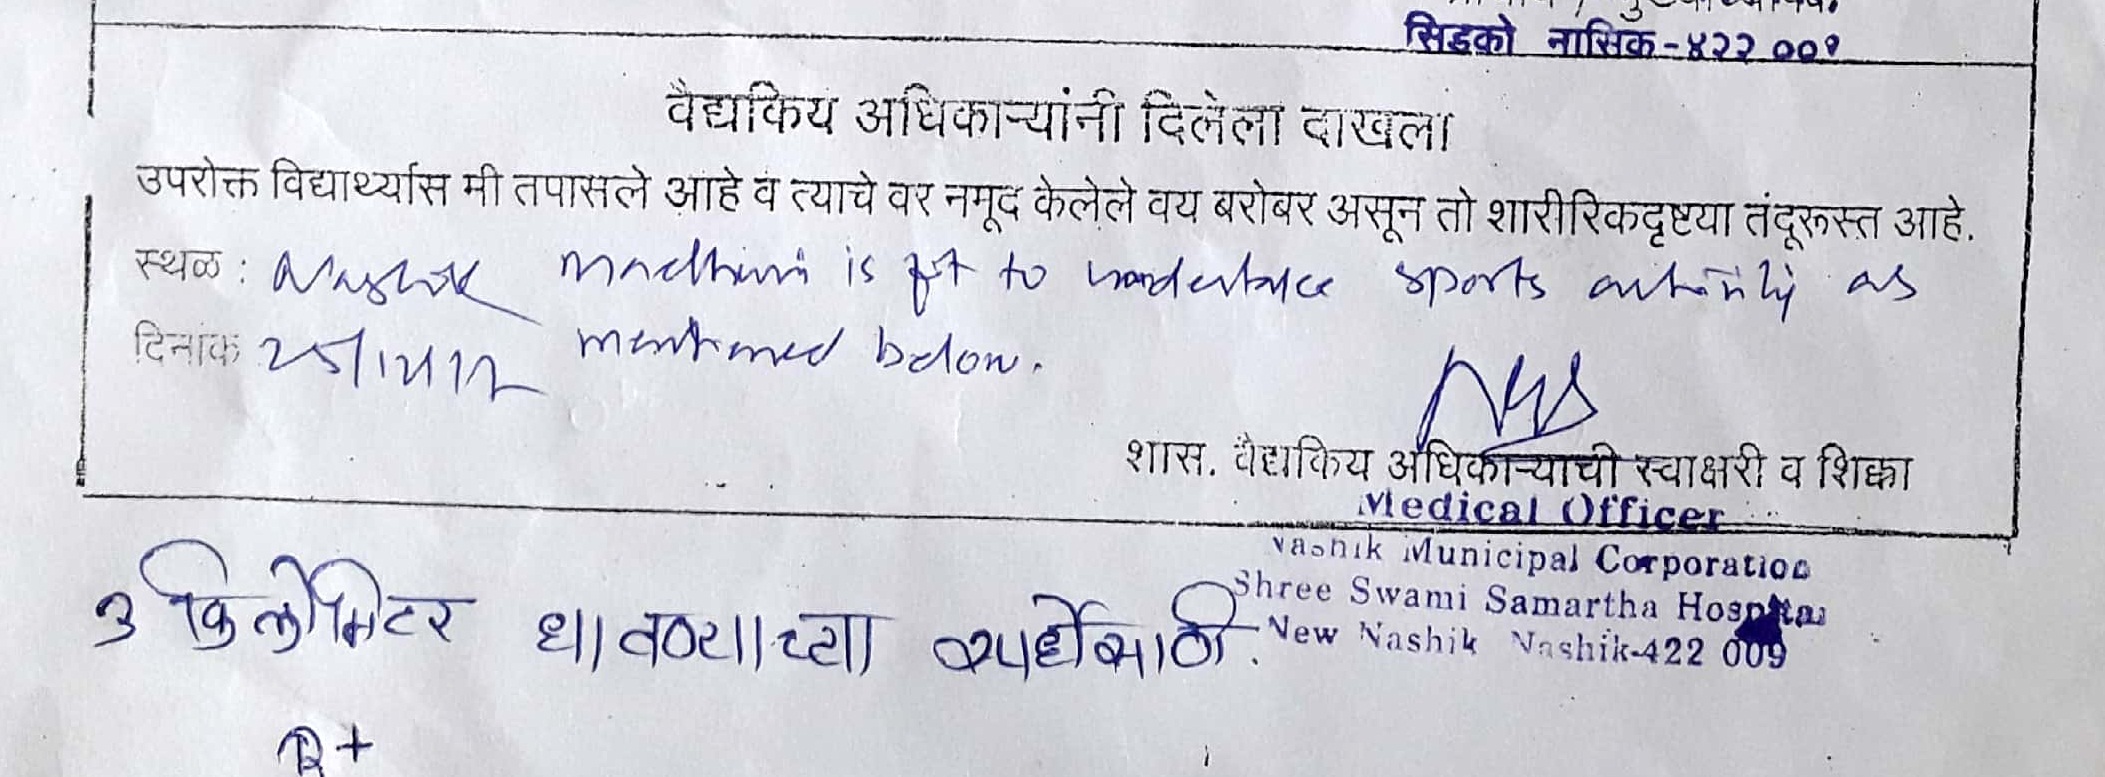 सिडको नासिक-४२२ ००९
वैद्यकिय अधिकाऱ्यांनी दिलेला दाखला
उपरोक्त विद्यार्थ्यास मी तपासले आहे व त्याचे वर नमूद केलेले वय बरोबर असून तो शारीरिकदृष्टया तंदूरूस्त आहे.
स्थळ : Nashik is fit to undertake sports activity as
दिनांक 25/12/12 mentioned below.
शास. वैद्यकिय अधिकाऱ्याची स्वाक्षरी व शिक्का
Medical Officer
Nashik Municipal Corporation
Shree Swami Samartha Hospital
New Nashik Nashik-422 009
3 किलोमिटर धावण्याच्या स्पर्धेसाठी.